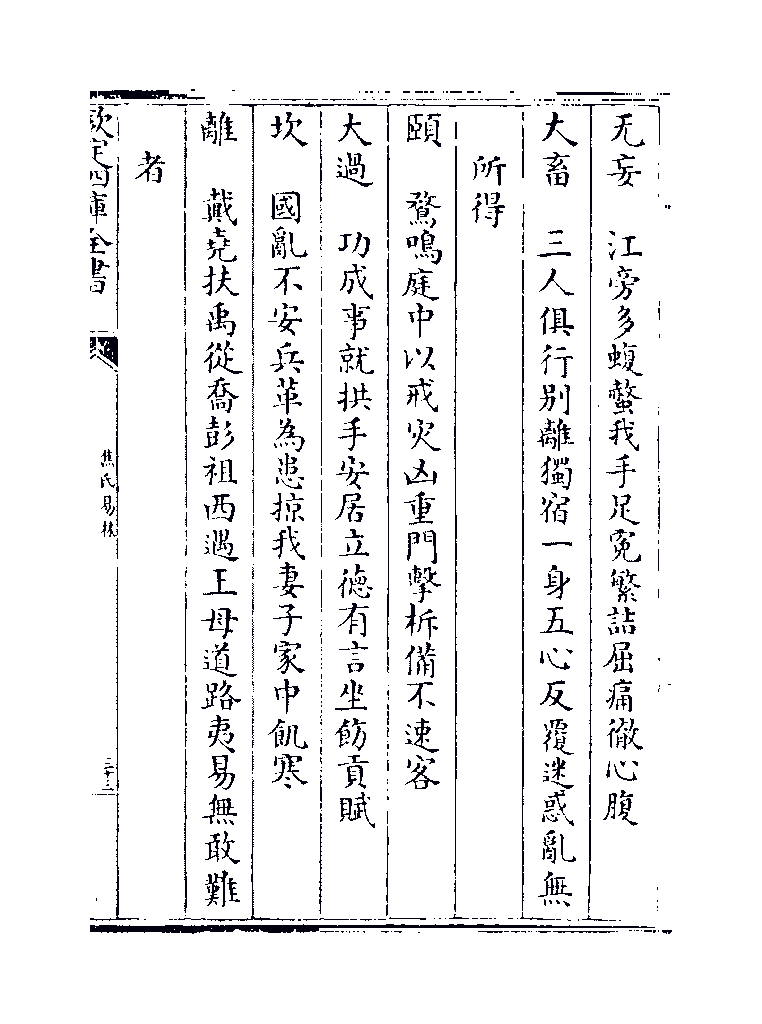 无妄　江旁多蝮螫我手足冤繁詰屈痛徹心腹
大畜　三人俱行别離獨宿一身五心反覆迷惑亂無
所得
頤　鵞鳴庭中以戒災凶重門擊柝備不速客
大過　功成事就拱手安居立德有言坐飭貢賦
坎　國亂不安兵革為患掠我妻子家中飢寒
離　戴堯扶禹從喬彭祖西遇王母道路夷易無敢難
者
欽定四庫全書
焦氏易林
二十三